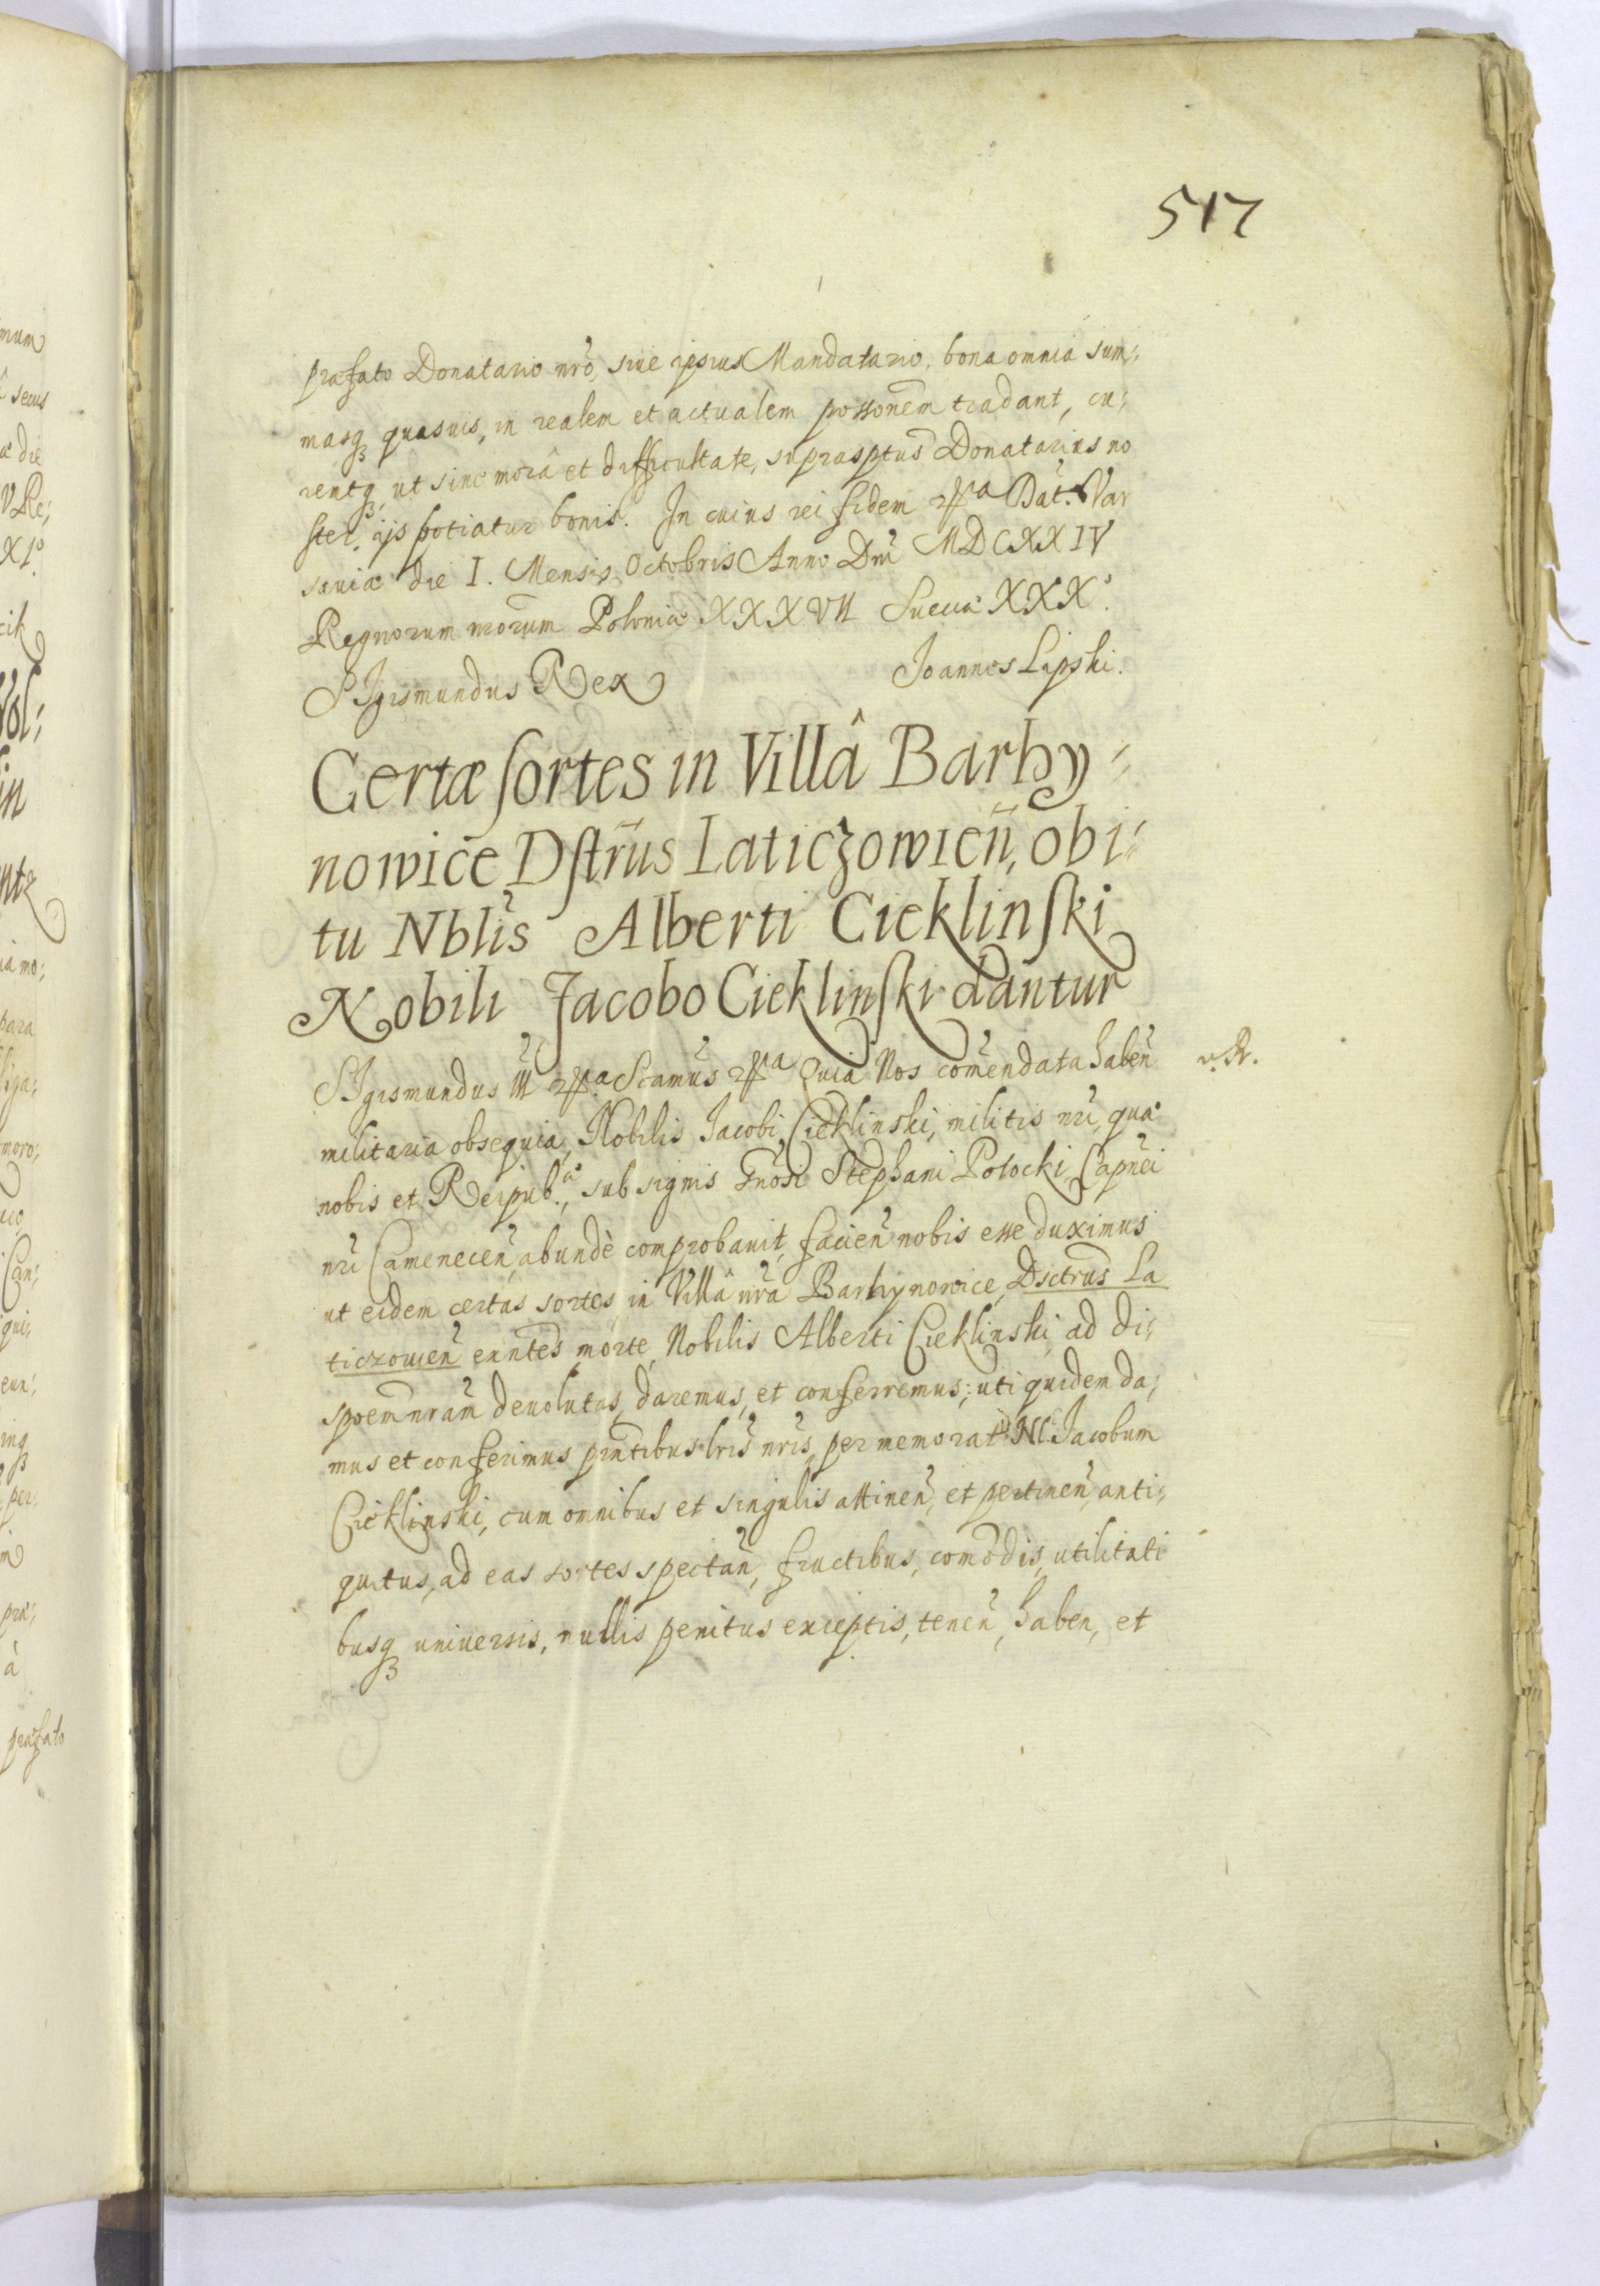 517
præfato Donatario nrõ, siue ipsius Mandatario, bona omnia sum;
masq quasuis, in realem et actualem possonem tradant, cu;
rentq ut sine morâ et difficultate, suprasptus Donatarius no
ster, ijs potiatur bonis. In cuius rei fidem Dat. Var
sauiæ die I. Mensis Octobris Anno Dni MDCXXIV
Regnorum nrorum Poloniæ XXXVII Sueciæ XXXI.
SIgismundus Rex Joannes Lipski.
Certæ sortes in Villâ Barhy=
nowice Dstrus Laticzowien, obi=
tu Nblis Alberti Cieklinski
Nobili Jacobo Cieklinski dantur
SIgismundus III Scamus Quia Nos comendata haben
militaria obsequia, Nobilis Jacobi Cieklinski, militis nri, quæ
nobis et Reipub.æ, sub signis Gnosi Stephani Potocki Capnei
nri Camenecen, abundè comprobauit, facien nobis esse duximus
ut eidem certas sortes in Villâ nrâ Barhynowice, Dsctrus La
ticzouien exntes, morte Nobilis Alberti Cieklinski, ad di;
spoem nram deuolutas, daremus, et conferremus; uti quidem da;
mus et conferimus pntibus lris nris, per memorat Nl. Jacobum
Cieklinski, cum omnibus et singulis attinen, et pertinen, anti;
quitus, ad eas sortes spectan, fructibus, comodis, utilitati
busq uniuersis, nullis penitus exceptis, tenen, haben, et